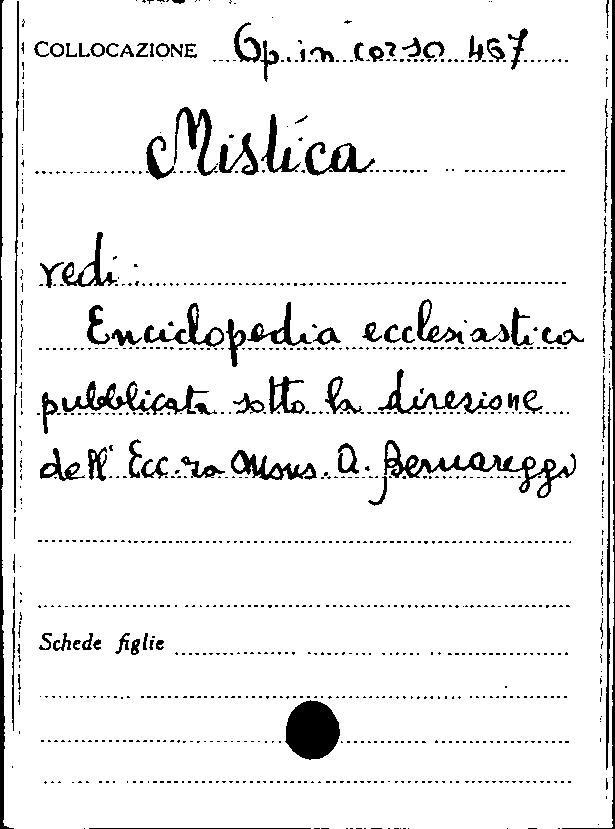 COLLOCAZIONE Op. in corso 467
Mistica
vedi:
Enciclopedia ecclesiastica
pubblicata sotto la direzione
dell' Ecc.za Mons. A. Bernareggi
Schede figlie